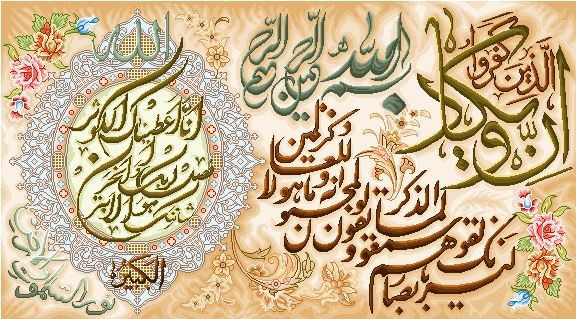 بسم الله الرحمن الرحيم
وان يكاد الذين كفروا
ليزلقونك بابصارهم
لما سمعوا الذكر
ويقولون انه لمجنون
وما هو الا ذكر للعالمين
الله
انا اعطيناك الكوثر
فصل لربك وانحر
ان شانئك هو الابتر
نور السموات